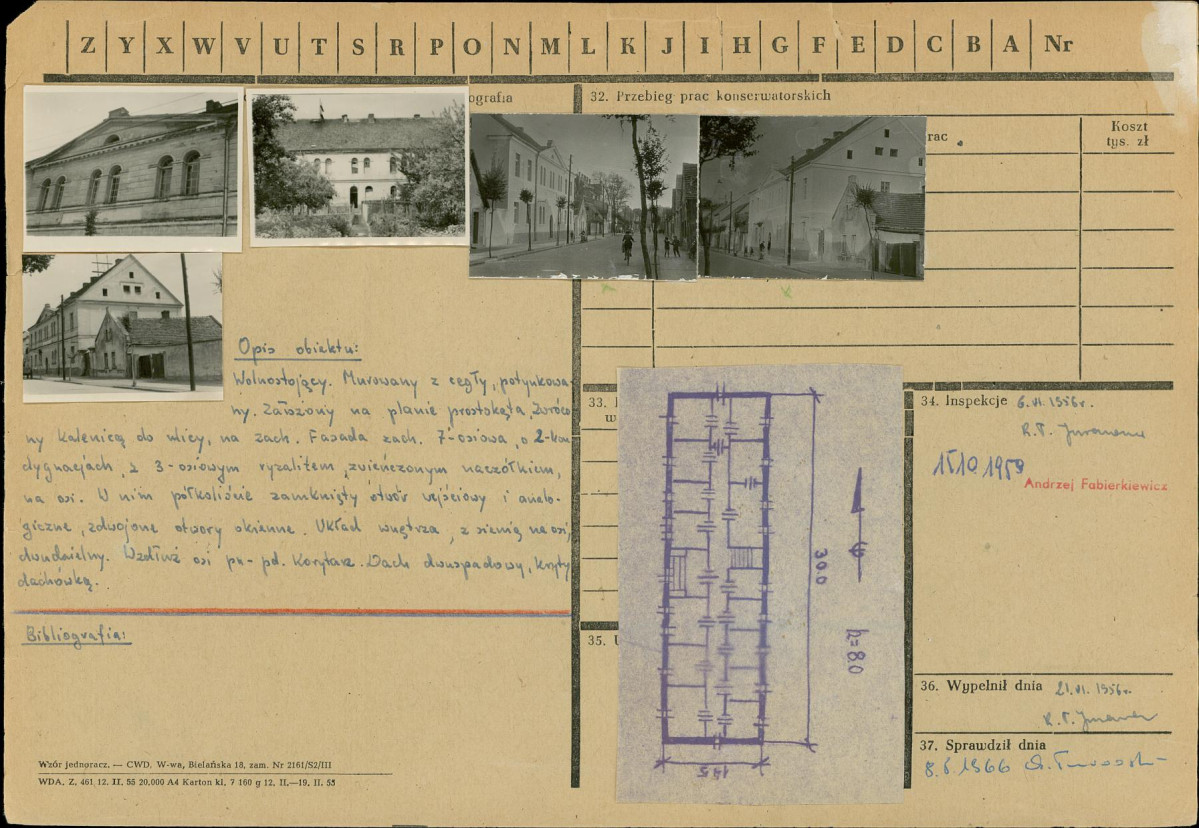 Z Y X W V U T S R P O N M L K J I H G F E D C B A Nr
ografia
32. Przebieg prac konserwatorskich
rac
Koszt
tys. zł
Opis obiektu:
Wolnostojący. Murowany z cegły, potynkowa-
ny. Założony na planie prostokąta, zwróco
ny kalenicą do ulicy, na zach. Fasada zach. 7-osiowa, o 2-kon
dygnacjach, z 3-osiowym ryzalitem, zwieńczonym naczółkiem,
na osi. W nim półkoliście zamknięty otwór wejściowy i analo-
giczne, zdwojone otwory okienne. Układ wnętrza, z sienią na osi,
dwudzielny. Wzdłuż osi pn-pd. Korytarz. Dach dwuspadowy, kryty
dachówką.
Bibliografia:
Wzór jednoracz. — CWD. W-wa, Bielańska 18, zam. Nr 2161/S2/III
WDA. Z. 461 12. II. 55 20.000 A4 Karton kl. 7 160 g 12. II.—19. II. 55
33.
w
35.
30.0
h=8.0
14.5
34. Inspekcje 6.VI.1956r.
15 10 1959
Andrzej Fabierkiewicz
36. Wypełnił dnia 21.VI.1956r.
37. Sprawdził dnia
8.6.1966